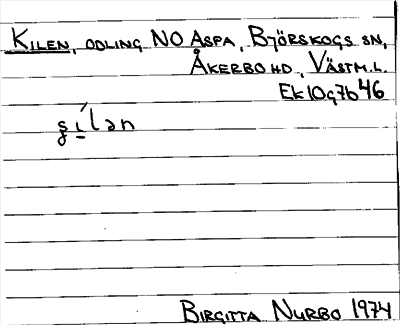 KILEN, ODLING NO ASPA, BJÖRSKOGS SN,
ÅKERBO HD, VÄSTM.L.
Ek 10g7b46
BIRGITTA NURBO 1974